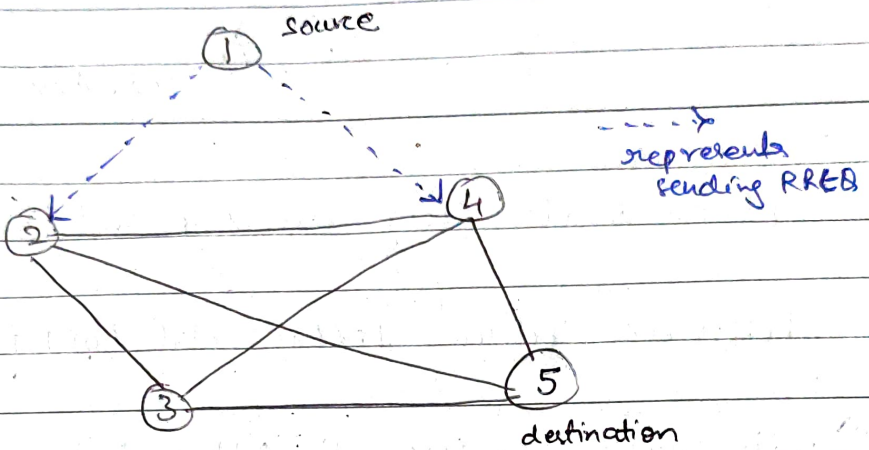 source
1
represents
sending RREQ
4
2
5
3
destination